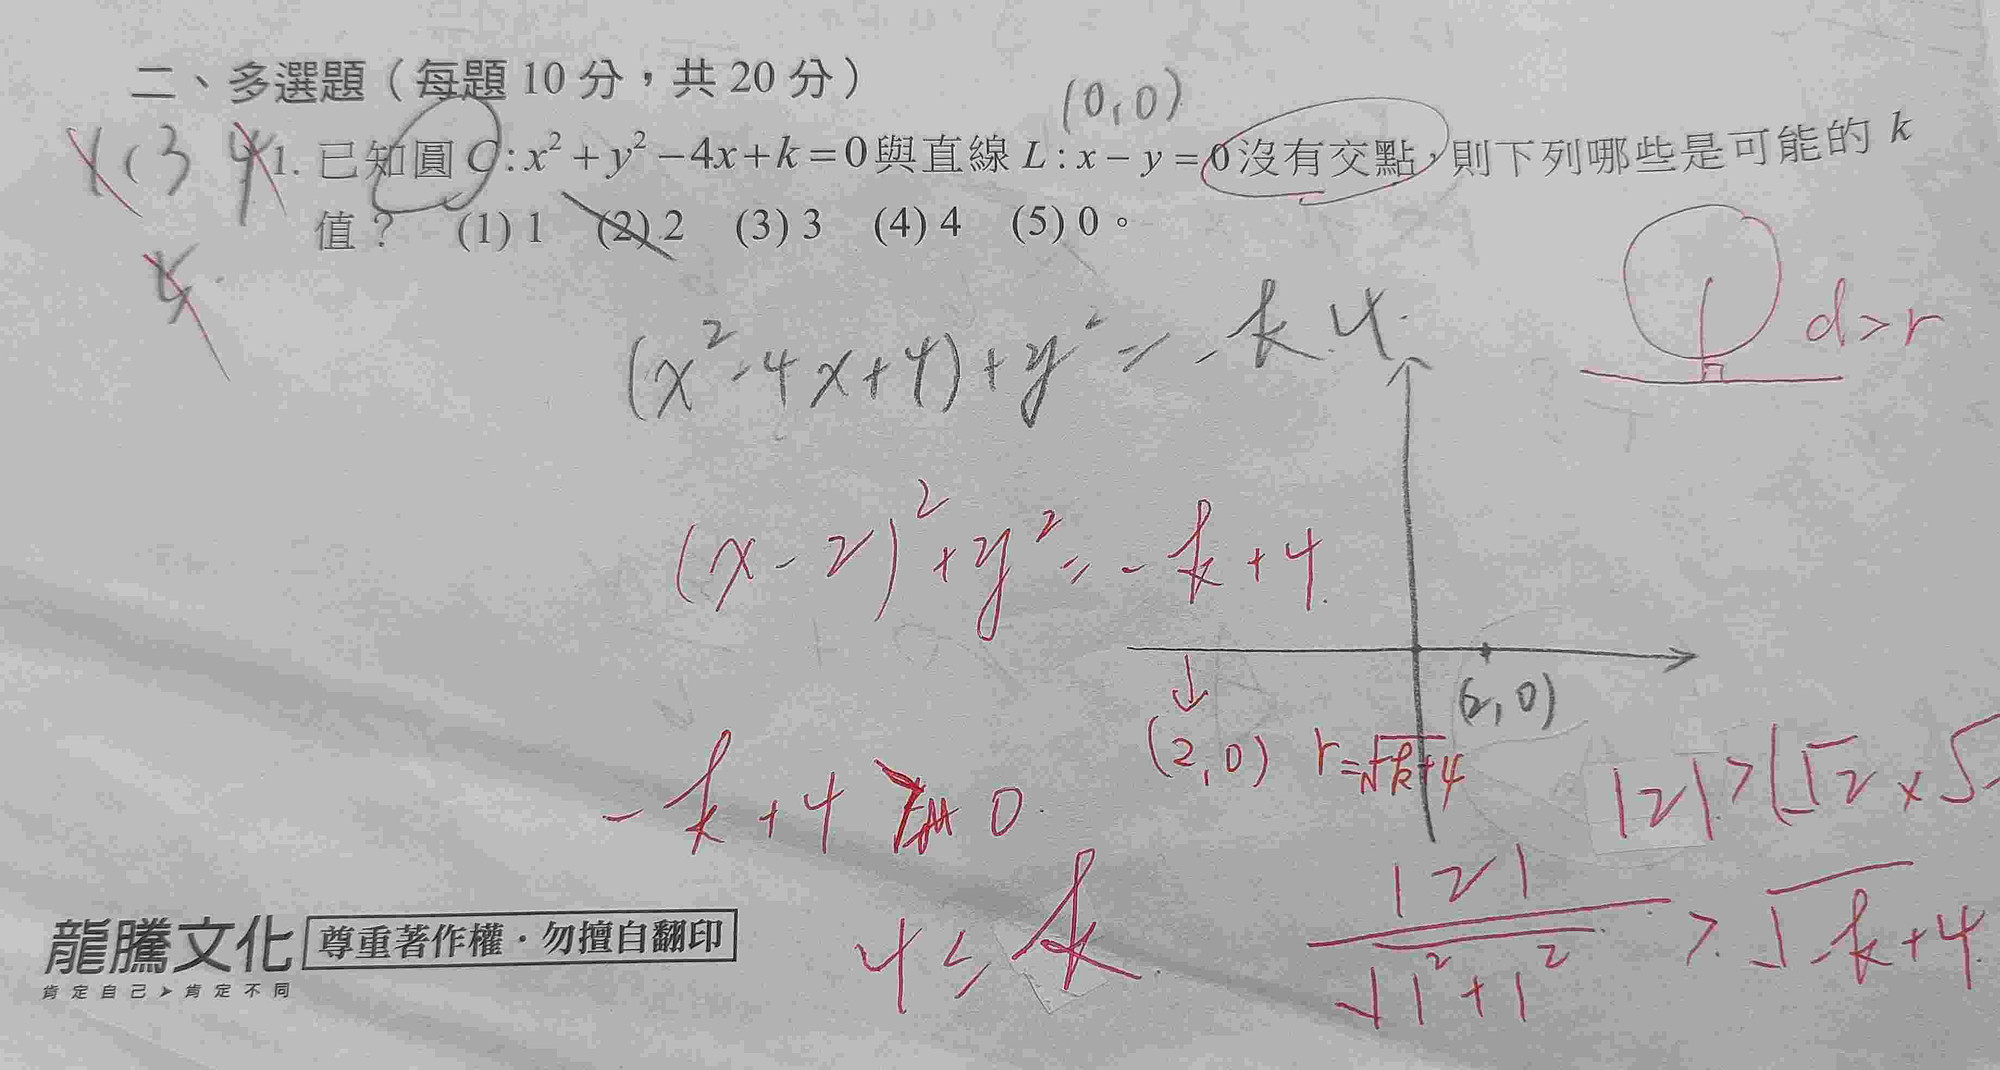 二、多選題（每題 10 分，共 20 分）
(0,0)
(3
1. 已知圓 C : x² + y² − 4x + k = 0 與直線 L : x − y = 0 沒有交點，則下列哪些是可能的 k
值？ (1) 1 (2) 2 (3) 3 (4) 4 (5) 0。
d>r
(x²-4x+4)+y²=-k 4
(x-2)²+y²=-k+4
(2,0)
(2,0) r=√-k+4
|2|>(√2×√
-k+4 > 0
|2|/√1²+1² > √-k+4
4≤k
龍騰文化 尊重著作權・勿擅自翻印
肯定自己➤肯定不同